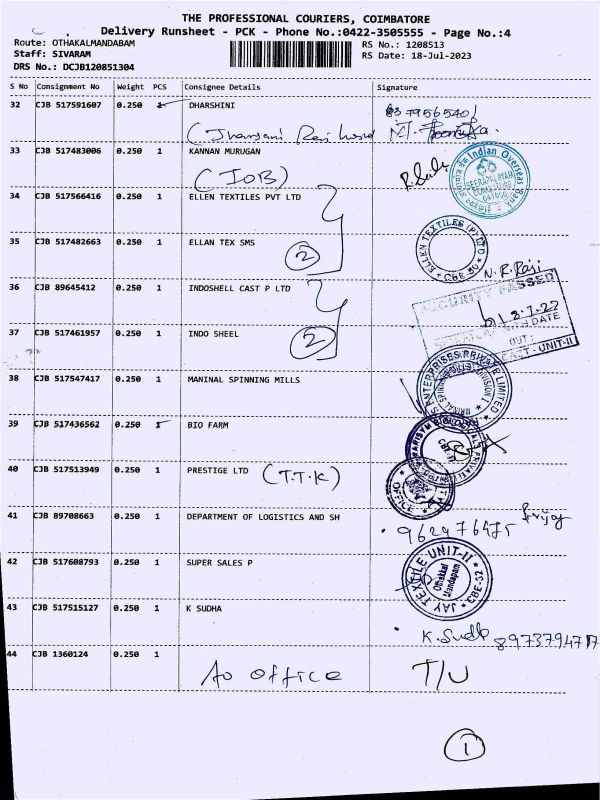 THE PROFESSIONAL COURIERS, COIMBATORE
Delivery Runsheet - PCK - Phone No.:0422-3505555 - Page No.:4
Route: OTHAKALMANDABAM
RS No.: 1208513
Staff: SIVARAM
RS Date: 18-Jul-2023
DRS No.: DCJB120851304
S No Consignment No Weight PCS Consignee Details Signature
32 CJB 517591607 0.250 1 DHARSHINI
33 CJB 517483006 0.250 1 KANNAN MURUGAN
(IOB)
Indian Overseas Bank
34 CJB 517566416 0.250 1 ELLEN TEXTILES PVT LTD
35 CJB 517482663 0.250 1 ELLAN TEX SMS
2
ELLEN TEXTILES (P) LTD
N. R. Raji
36 CJB 89645412 0.250 1 INDOSHELL CAST P LTD
SECURITY PASSED
DATE
OUT:
EAST-UNIT-II
37 CJB 517461957 0.250 1 INDO SHEEL
2
38 CJB 517547417 0.250 1 MANINAL SPINNING MILLS
ENTERPRISES PRIVATE LIMITED
39 CJB 517436562 0.250 1 BIO FARM
40 CJB 517513949 0.250 1 PRESTIGE LTD (T.T.K)
OFFICE
41 CJB 89708663 0.250 1 DEPARTMENT OF LOGISTICS AND SH
42 CJB 517608793 0.250 1 SUPER SALES P
JAY TEXTILE UNIT-II
Othakkal
Mandapam
CBE-32
43 CJB 517515127 0.250 1 K SUDHA
K. Sudh
44 CJB 1360124 0.250 1
Ao office T/U
1